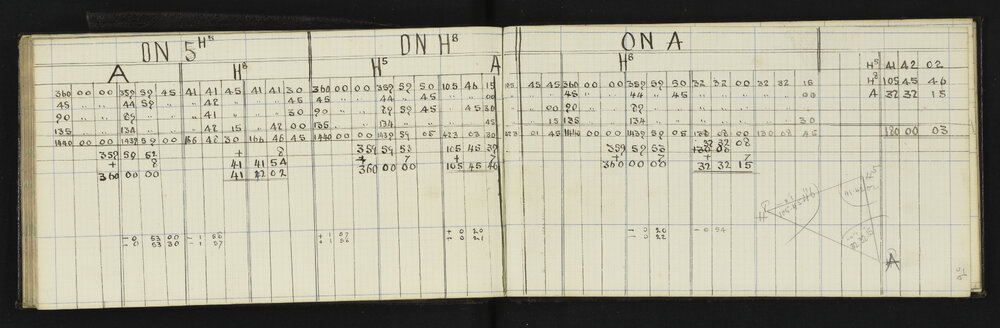 ON 5 H8 ON H8 ON A
A H8 H5 A H8 H5 41 42 02
H8 105 45 46
A 32 32 15
360 00 00 359 59 45 41 41 45 41 41 30 360 00 00 359 59 50 105 46 15 105 45 45 360 00 00 359 59 50 32 32 00 32 32 16
45 " " 44 59 " " 42 " " 45 45 " " 44 " 45 " " 00 45 " " 44 " 45 " " " " 00
90 " " 89 " " " 41 " " 30 90 " " 89 59 45 " 45 30 " " 00 90 " " 89
135 " " 134 " " 42 15 " 42 00 135 " " 134 " " " 45 " 15 135 134 30
180 00 03
1440 00 00 1439 59 00 166 48 30 166 46 45 1440 00 00 1439 59 05 423 03 30 423 01 45 1440 00 00 1439 59 05 130 08 00 130 08 45
359 59 52 + 8 359 59 53 105 45 39 359 59 53 32 32 08
+ 8 41 41 54 + 7 + 7 + 7 + 7
360 00 00 41 42 02 360 00 00 105 45 46 360 00 00 32 32 15
- 0 53 00 - 1 + 1 57 + 0 20 - 0 20 - 0 54
- 0 53 30 - 1 57 + 1 56 + 0 21 - 0 22
H5
41.42.02
H8 105.45.46
A